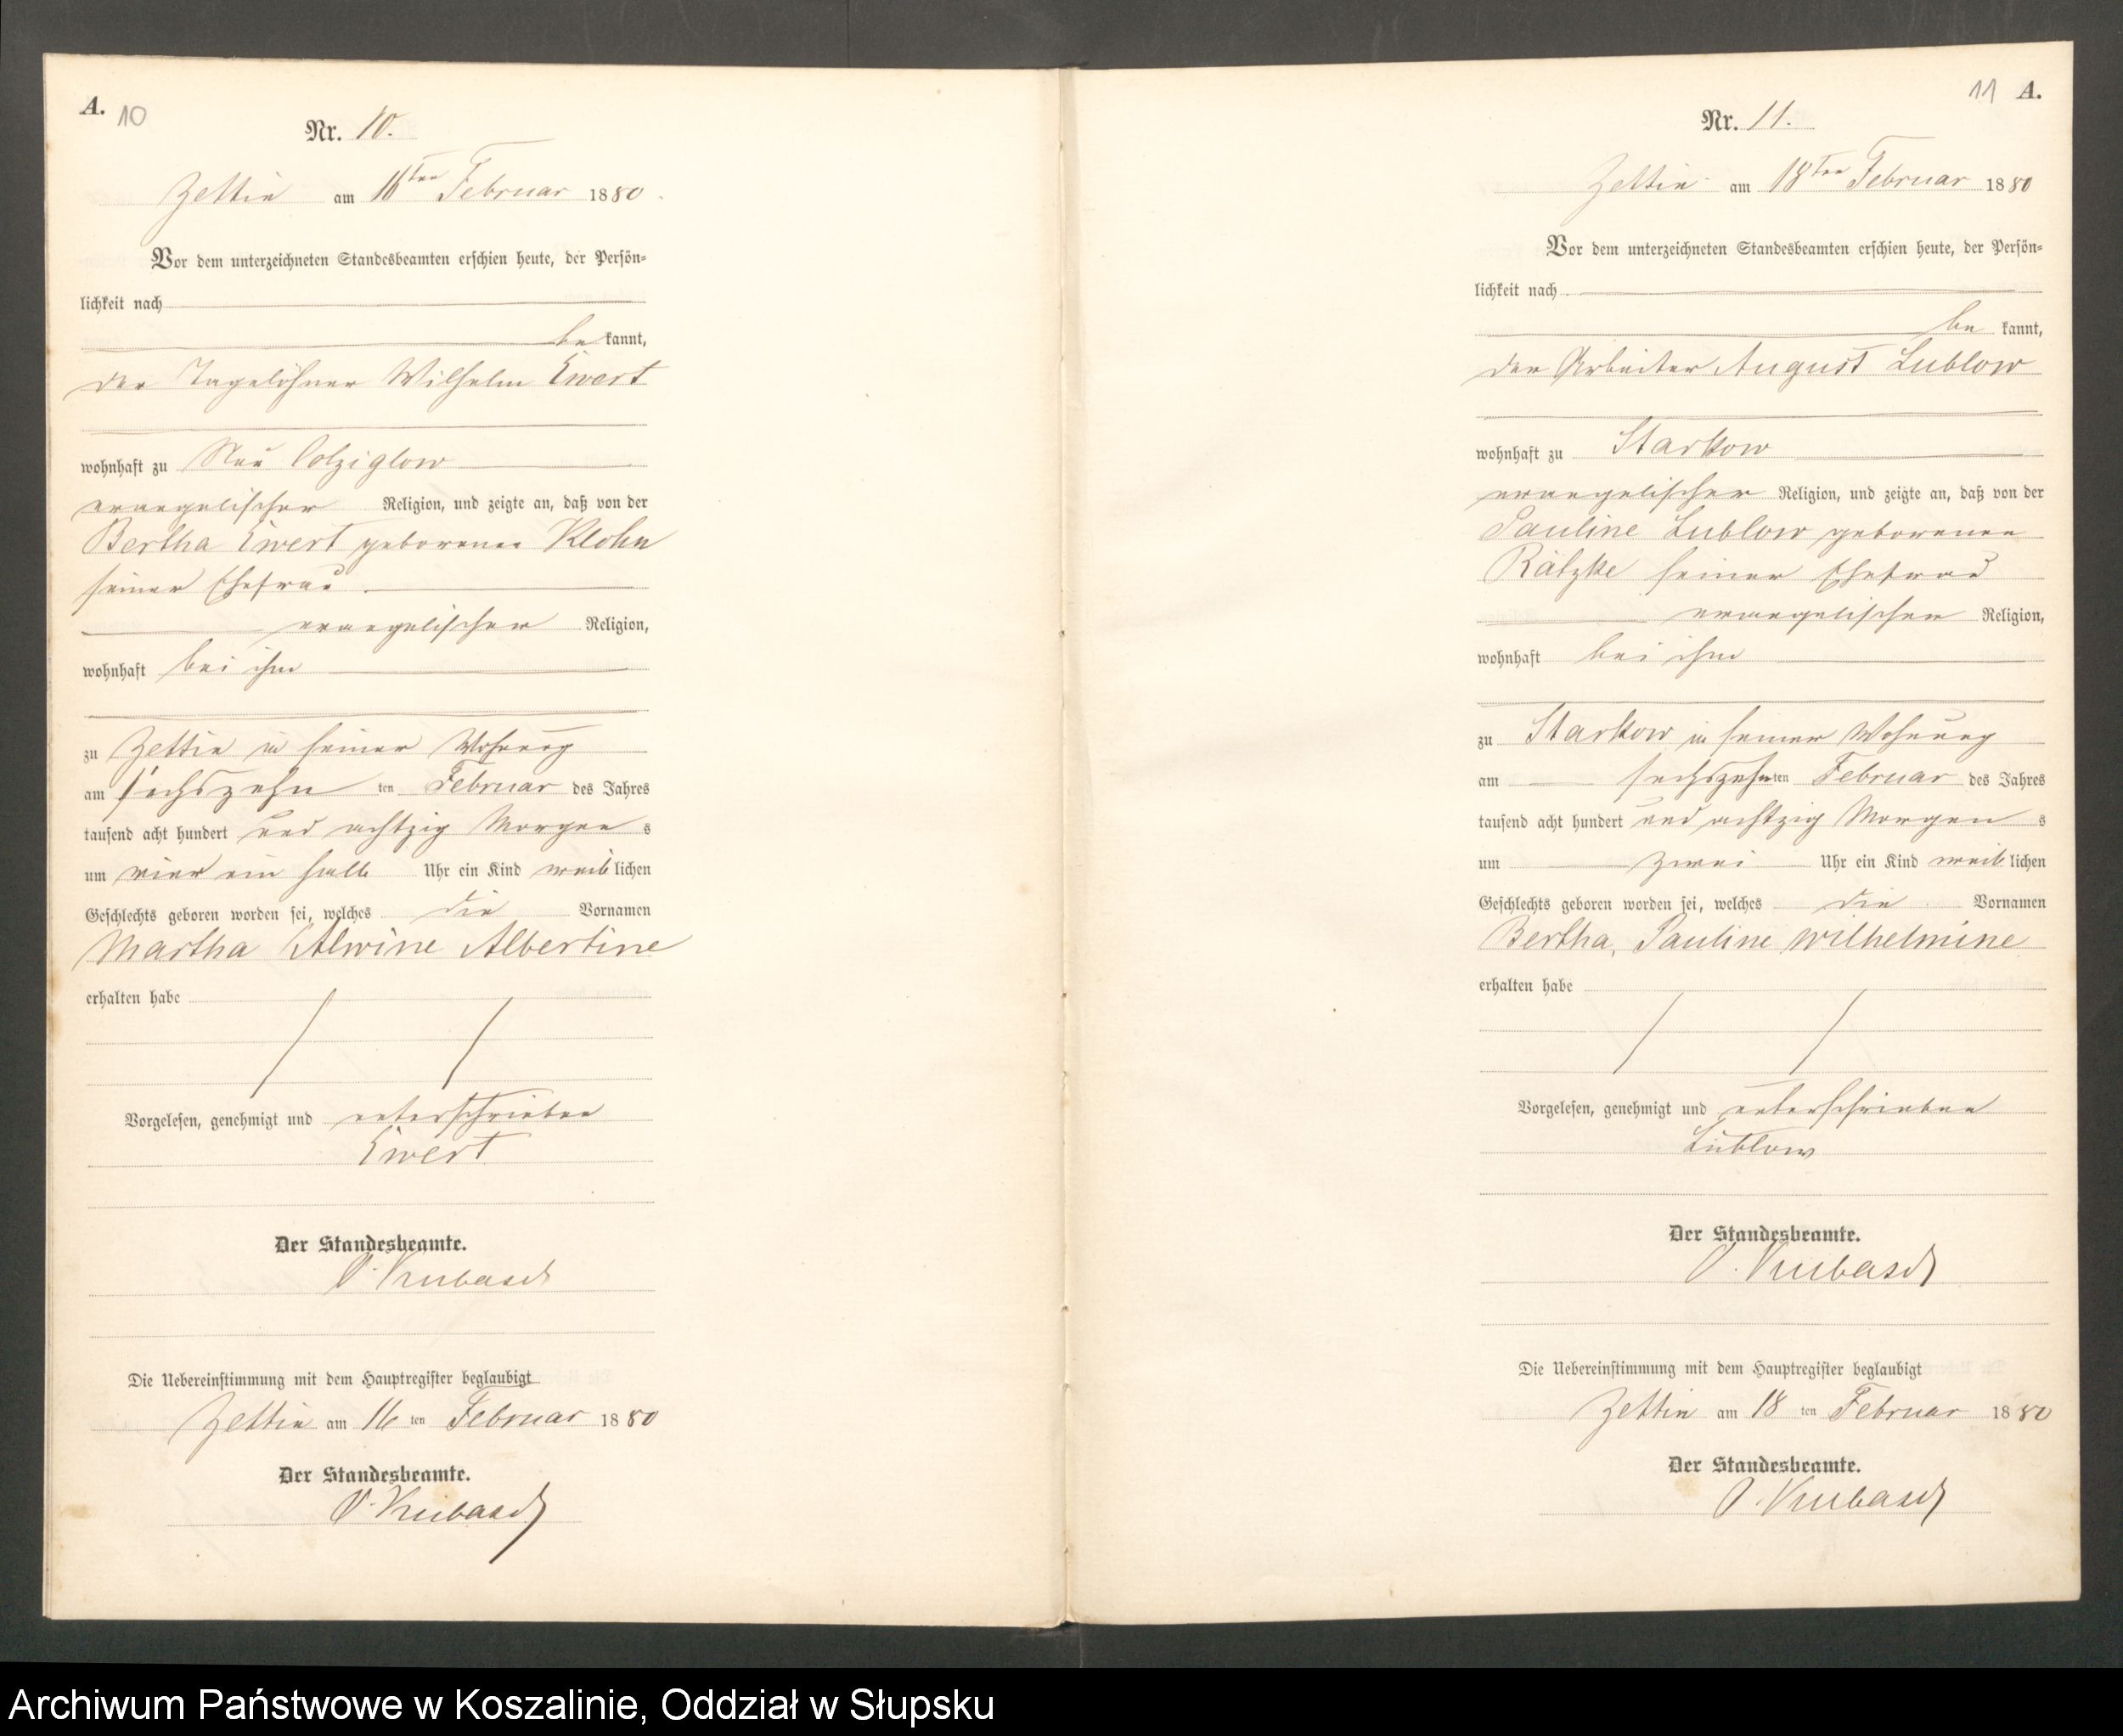 A. 10
Nr. 10.
Zettin am 16ten Februar 1880.
Vor dem unterzeichneten Standesbeamten erschien heute, der Persön-
lichkeit nach
be kannt,
der Tagelöhner Wilhelm Ewert
wohnhaft zu Neu Colziglow
evangelischer Religion, und zeigte an, daß von der
Bertha Ewert geborenen Klohn
seiner Ehefrau
evangelischer Religion,
wohnhaft bei ihm
zu Zettin in seiner Wohnung
am sechszehn ten Februar des Jahres
tausend acht hundert und achtzig Morgen s
um vier ein halb Uhr ein Kind weib lichen
Geschlechts geboren worden sei, welches die Vornamen
Martha Alwine Albertine
erhalten habe
Vorgelesen, genehmigt und unterschrieben
Ewert
Der Standesbeamte.
Die Uebereinstimmung mit dem Hauptregister beglaubigt
Zettin am 16 ten Februar 1880
Der Standesbeamte.
11 A.
Nr. 11.
Zettin am 18ten Februar 1880
Vor dem unterzeichneten Standesbeamten erschien heute, der Persön-
lichkeit nach
be kannt,
der Arbeiter August Lublow
wohnhaft zu Starkow
evangelischer Religion, und zeigte an, daß von der
Pauline Lublow geborenen
Rätzke seiner Ehefrau
evangelischen Religion,
wohnhaft bei ihm
zu Starkow in seiner Wohnung
am sechszehnten Februar des Jahres
tausend acht hundert und achtzig Morgen s
um zwei Uhr ein Kind weib lichen
Geschlechts geboren worden sei, welches die Vornamen
Bertha, Pauline Wilhelmine
erhalten habe
Vorgelesen, genehmigt und unterschrieben
Lublow
Der Standesbeamte.
Die Uebereinstimmung mit dem Hauptregister beglaubigt
Zettin am 18 ten Februar 1880
Der Standesbeamte.
Archiwum Państwowe w Koszalinie, Oddział w Słupsku